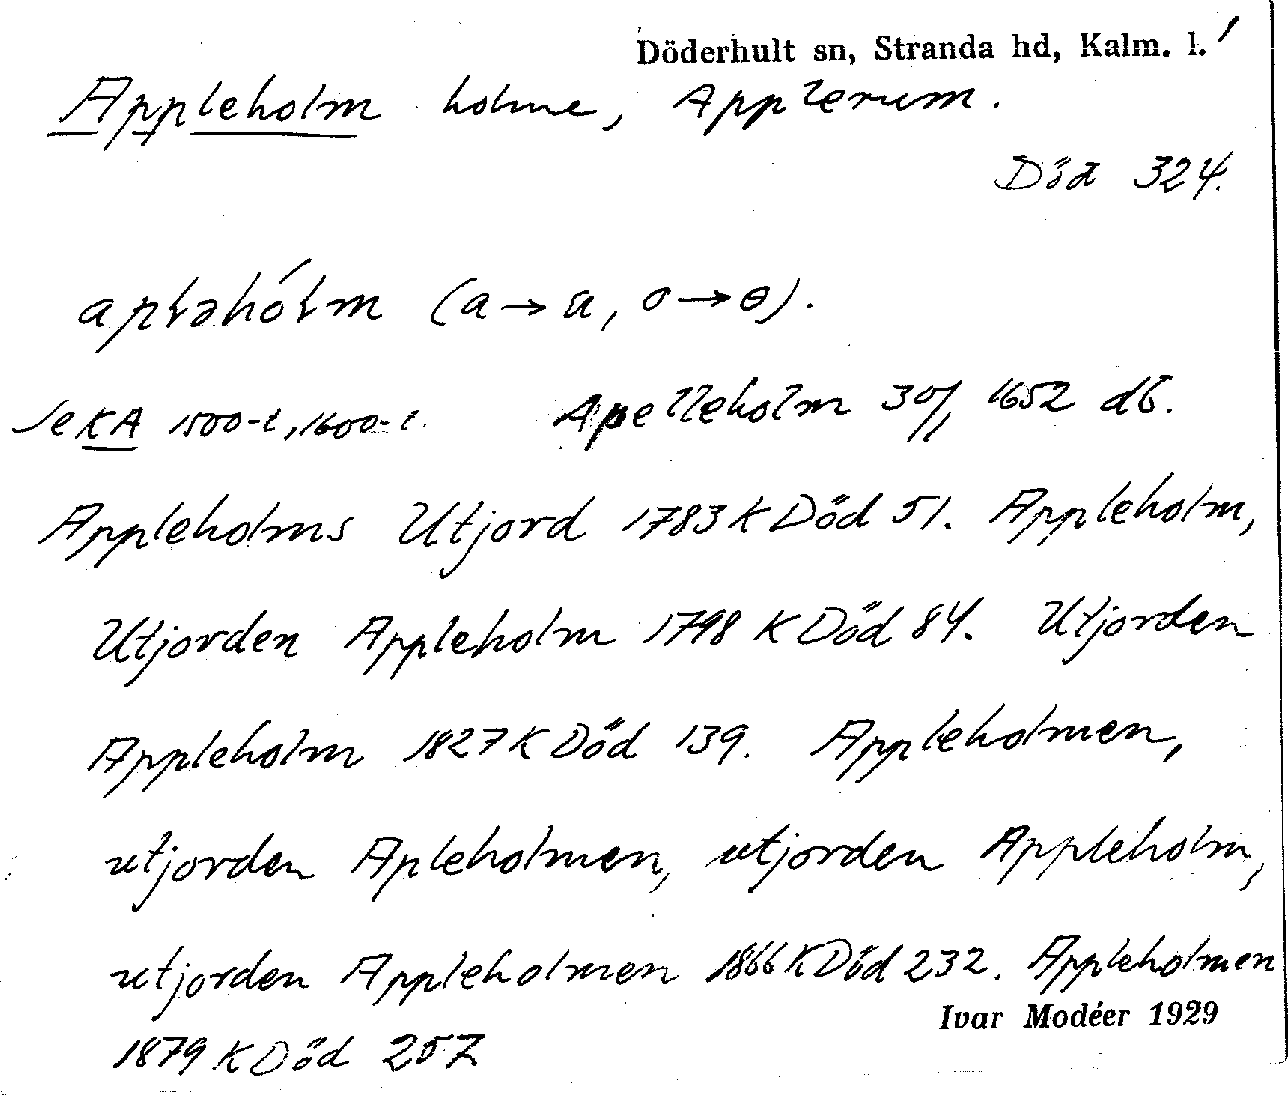 Döderhult sn, Stranda hd, Kalm. l.
Appleholm holme, Applerum.
Död 324.
aplahólm (a→ɑ, o→ɵ).
Se KA 1500-t, 1600-t. Apelleholm 30/1 1652 db.
Appleholms Utjord 1783 K Död 51. Appleholm,
Utjorden Appleholm 1798 K Död 84. Utjorden
Appleholm 1827 K Död 139. Appleholmen,
utjorden Apleholmen, utjorden Appleholm,
utjorden Appleholmen 1866 K Död 232. Appleholmen
Ivar Modéer 1929
1879 K Död 257